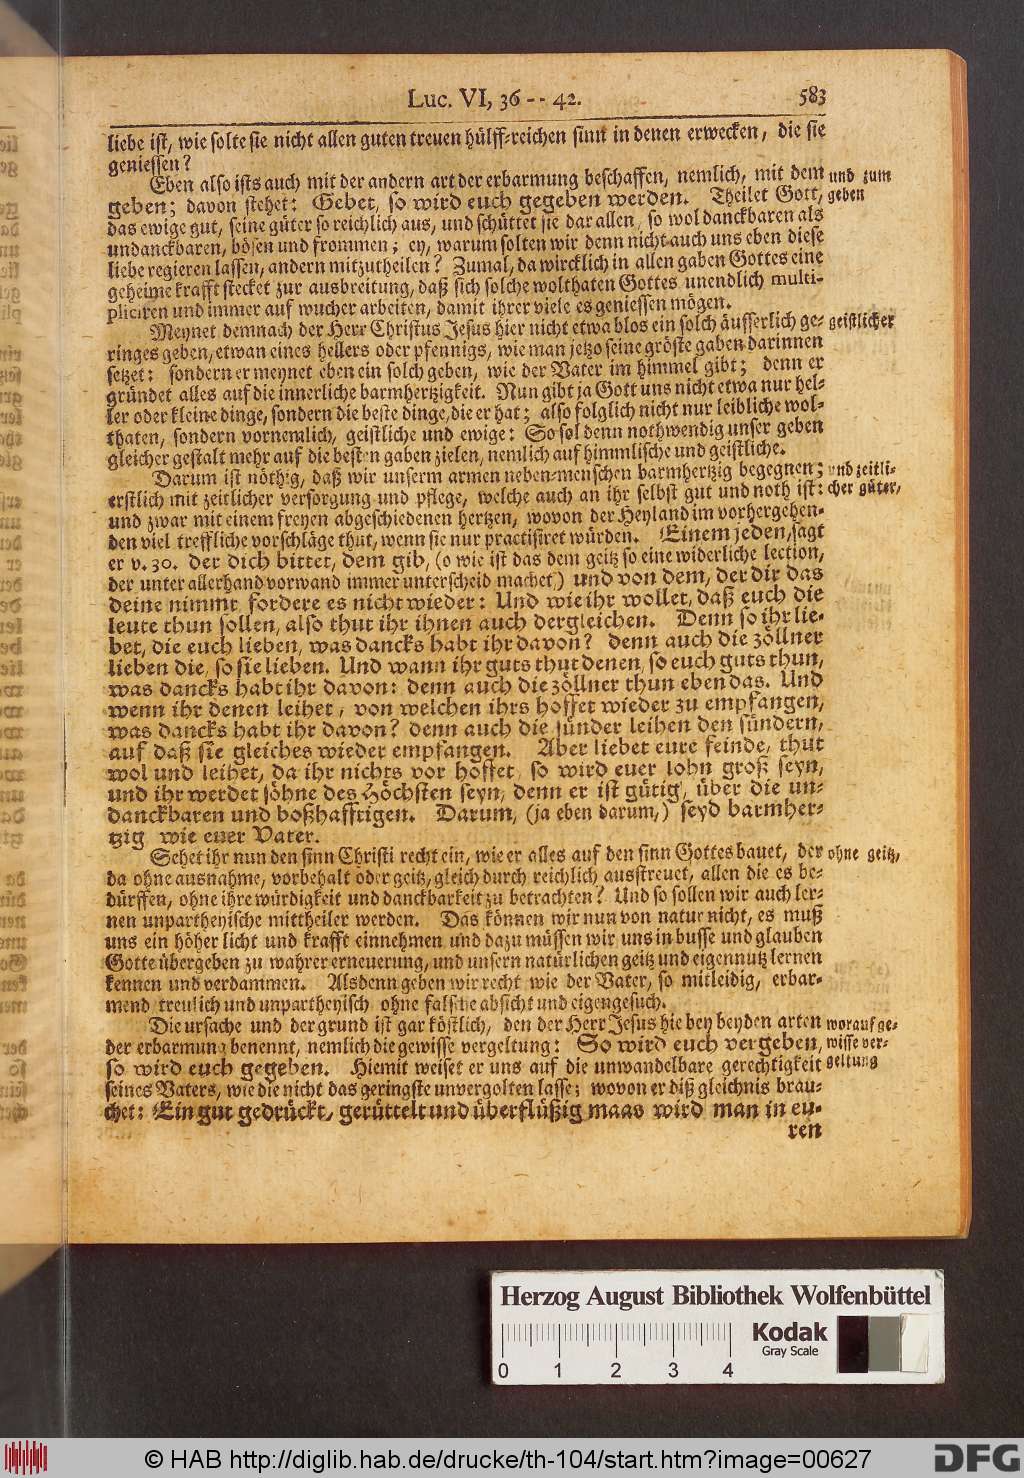 Luc. VI, 36 -- 42. 583
liebe ist, wie solte sie nicht allen guten treuen hülff-reichen sinn in denen erwecken, die sie
geniessen?
Eben also ists auch mit der andern art der erbarmung beschaffen, nemlich, mit dem
und zum
geben; davon stehet: Gebet, so wird euch gegeben werden. Theilet Gott,
geben
das ewige gut, seine güter so reichlich aus, und schüttet sie dar allen, so wol danckbaren als
undanckbaren, bösen und frommen; ey, warum solten wir denn nicht auch uns eben diese
liebe regieren lassen, andern mitzutheilen? Zumal, da wircklich in allen gaben Gottes eine
geheime krafft stecket zur ausbreitung, daß sich solche wolthaten Gottes unendlich multi-
pliciren und immer auf wucher arbeiten, damit ihrer viele es geniessen mögen.
Meynet demnach der Herr Christus Jesus hier nicht etwa blos ein solch äusserlich ge-
geistlicher
ringes geben, etwan eines hellers oder pfennigs, wie man jetzo seine gröste gaben darinnen
setzet: sondern er meynet eben ein solch geben, wie der Vater im himmel gibt; denn er
gründet alles auf die innerliche barmhertzigkeit. Nun gibt ja Gott uns nicht etwa nur hel-
ler oder kleine dinge, sondern die beste dinge, die er hat; also folglich nicht nur leibliche wol-
thaten, sondern vornemlich, geistliche und ewige: So sol denn nothwendig unser geben
gleicher gestalt mehr auf die besten gaben zielen, nemlich auf himmlische und geistliche.
Darum ist nöthig, daß wir unserm armen neben-menschen barmhertzig begegnen;
und zeitli-
erstlich mit zeitlicher versorgung und pflege, welche auch an ihr selbst gut und noth ist:
cher güter,
und zwar mit einem freyen abgeschiedenen hertzen, wovon der Heyland im vorhergehen-
den viel treffliche vorschläge thut, wenn sie nur practisiret würden. Einem jeden, sagt
er v. 30. der dich bittet, dem gib, (o wie ist das dem geitz so eine widerliche lection,
der unter allerhand vorwand immer unterscheid machet) und von dem, der dir das
deine nimmt, fordere es nicht wieder: Und wie ihr wollet, daß euch die
leute thun sollen, also thut ihr ihnen auch dergleichen. Denn so ihr lie-
bet, die euch lieben, was dancks habt ihr davon? denn auch die zöllner
lieben die, so sie lieben. Und wann ihr guts thut denen, so euch guts thun,
was dancks habt ihr davon: denn auch die zöllner thun eben das. Und
wenn ihr denen leihet, von welchen ihrs hoffet wieder zu empfangen,
was dancks habt ihr davon? denn auch die sünder leihen den sündern,
auf daß sie gleiches wieder empfangen. Aber liebet eure feinde, thut
wol und leihet, da ihr nichts vor hoffet, so wird euer lohn groß seyn,
und ihr werdet söhne des Höchsten seyn, denn er ist gütig, über die un-
danckbaren und boßhafftigen. Darum, (ja eben darum,) seyd barmher-
tzig wie euer Vater.
Sehet ihr nun den sinn Christi recht ein, wie er alles auf den sinn Gottes bauet, der
ohne geitz,
da ohne ausnahme, vorbehalt oder geitz, gleich durch reichlich ausstreuet, allen die es be-
dürffen, ohne ihre würdigkeit und danckbarkeit zu betrachten? Und so sollen wir auch ler-
nen unpartheyische mittheiler werden. Das können wir nun von natur nicht, es muß
uns ein höher licht und krafft einnehmen und dazu müssen wir uns in busse und glauben
Gotte übergeben zu wahrer erneuerung, und unsern natürlichen geitz und eigennutz lernen
kennen und verdammen. Alsdenn geben wir recht wie der Vater, so mitleidig, erbar-
mend treulich und unpartheyisch ohne falsche absicht und eigengesuch.
Die ursache und der grund ist gar köstlich, den der Herr Jesus hie bey beyden arten
worauf ge-
der erbarmung benennt, nemlich die gewisse vergeltung: So wird euch vergeben,
wisse ver-
so wird euch gegeben. Hiemit weiset er uns auf die unwandelbare gerechtigkeit
geltung
seines Vaters, wie die nicht das geringste unvergolten lasse; wovon er diß gleichnis brau-
chet: Ein gut gedrückt, gerüttelt und überflüßig maas wird man in eu-
ren
Herzog August Bibliothek Wolfenbüttel
Kodak
Gray Scale
0 1 2 3 4
© HAB http://diglib.hab.de/drucke/th-104/start.htm?image=00627
DFG